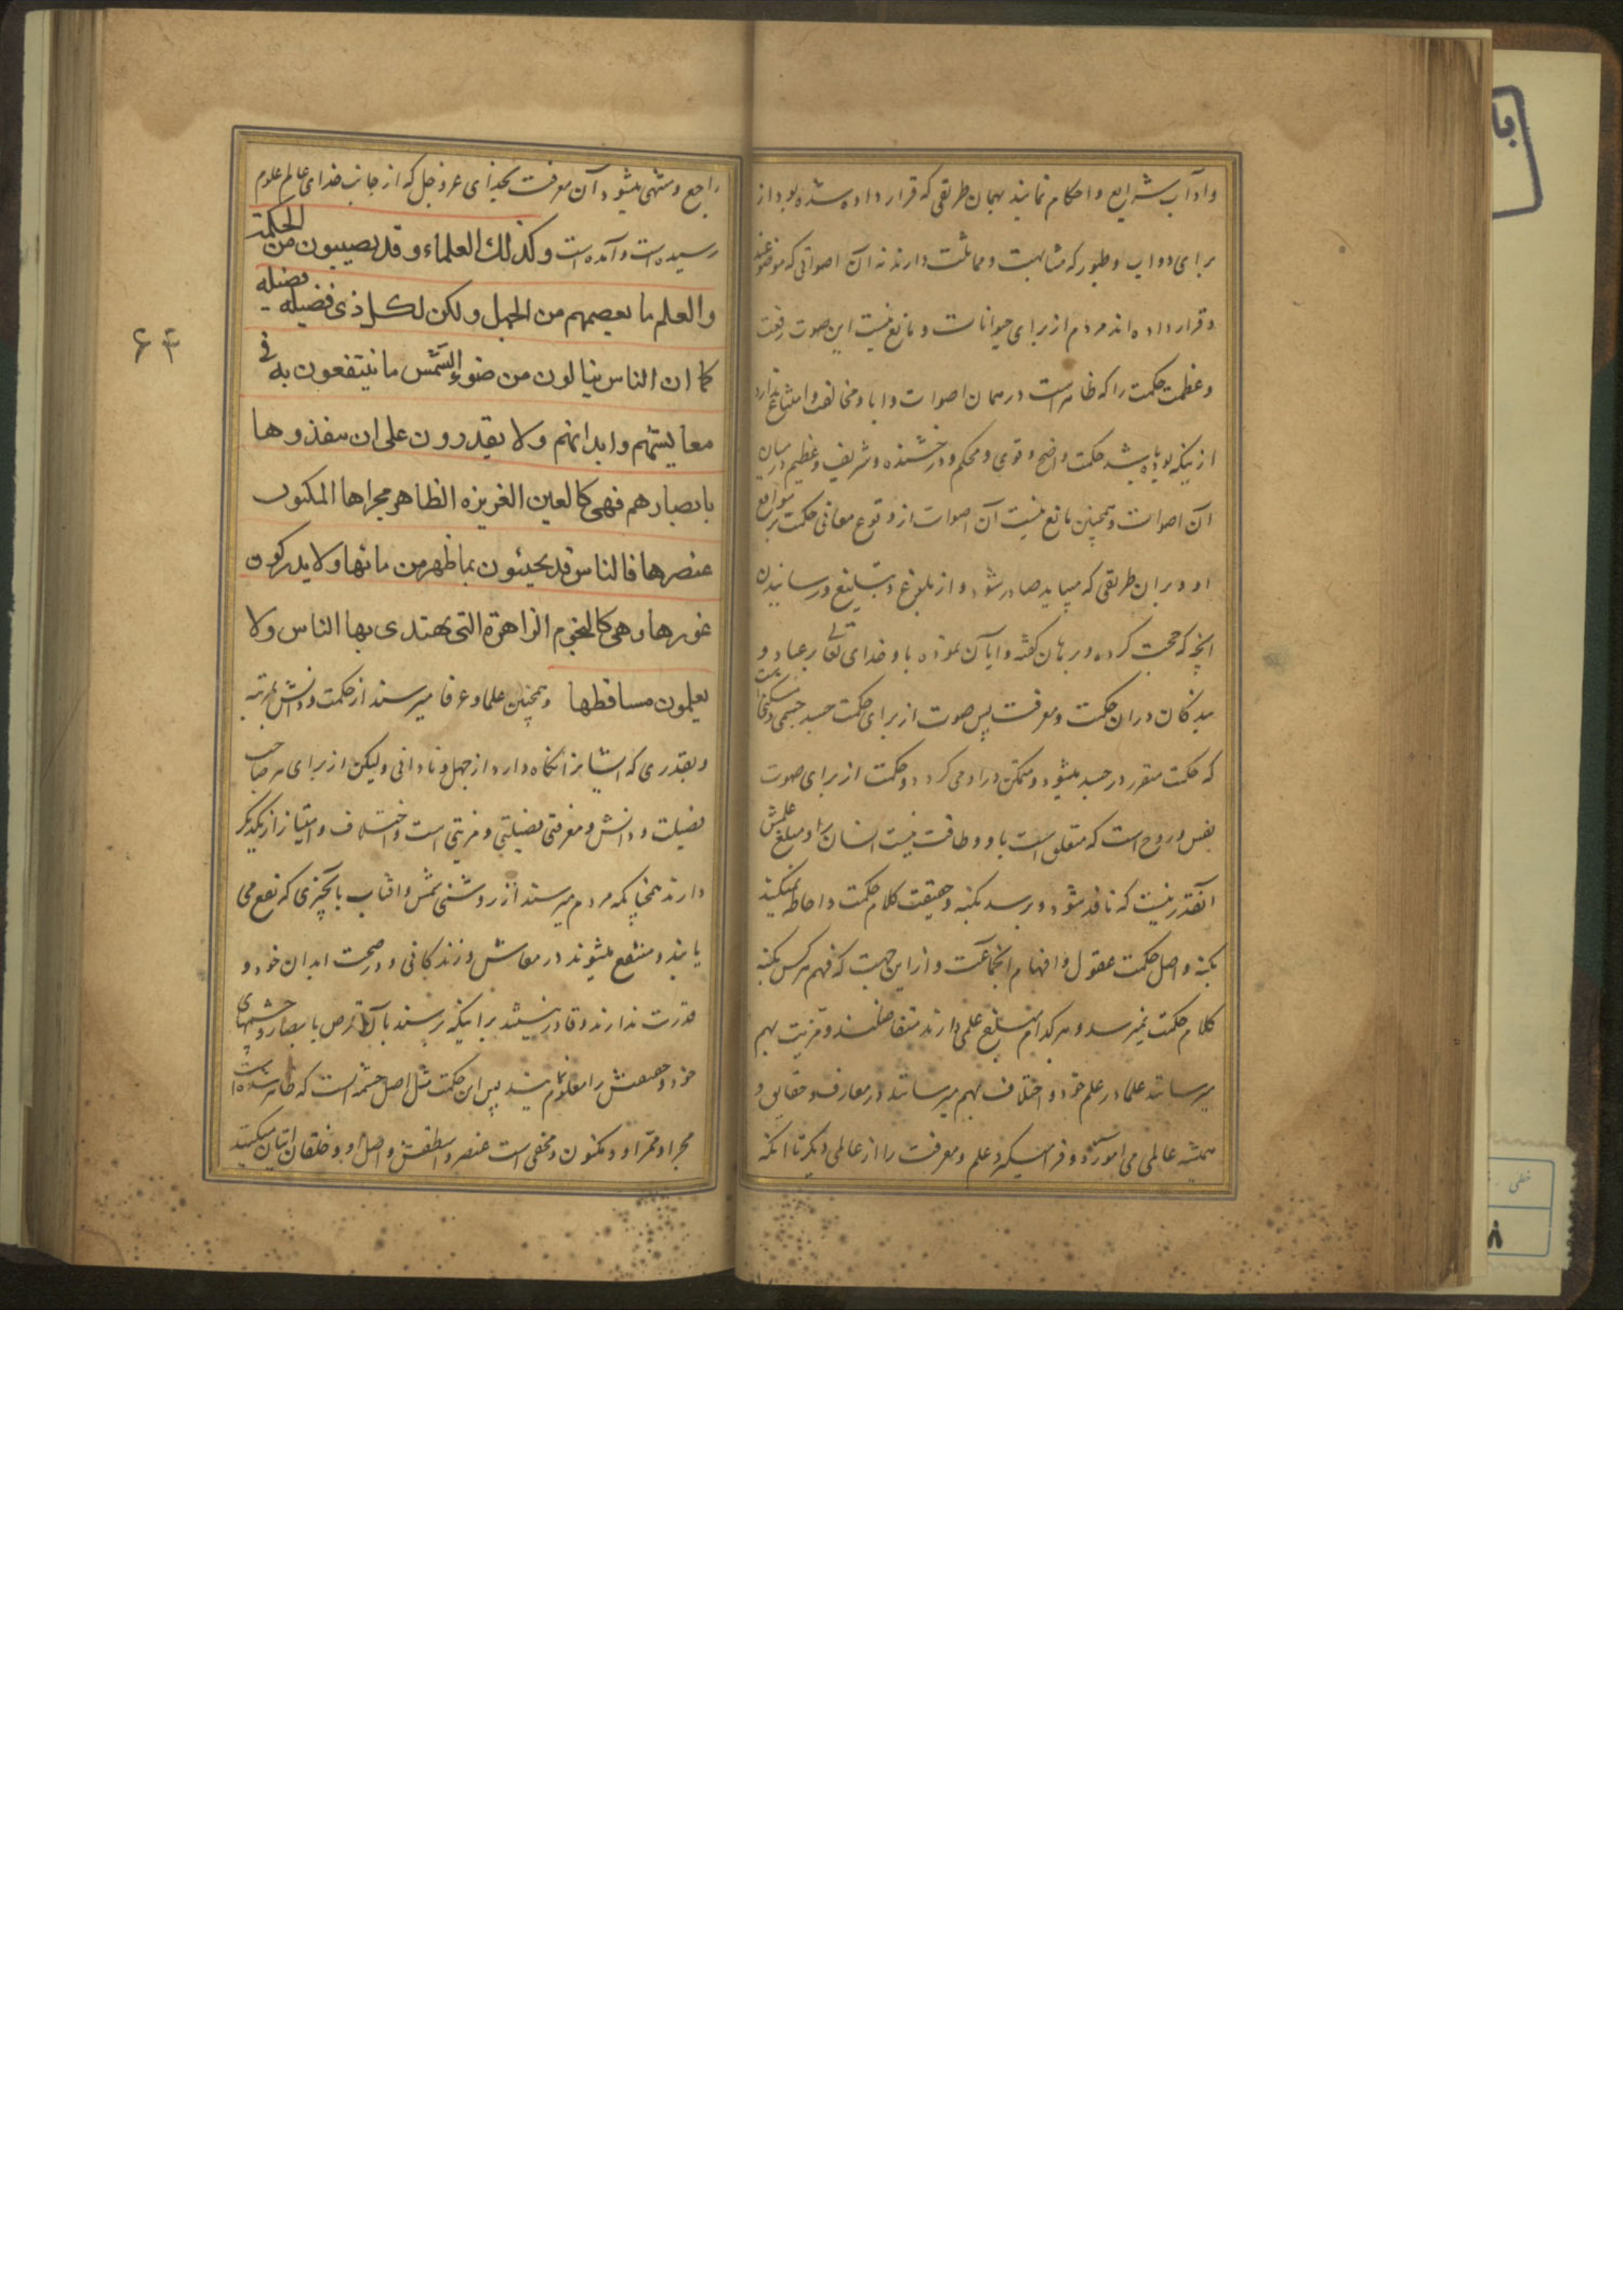 وادآب شرایع و احکام نمایند بهمان طریقی که قرار داده شده بود از
برای دواب و طیور که مشابهت و مماثلت دارند نه آن اصواتی که
و قرار داده اند مردم از برای حیوانات و مانع نیست این صوت رفعت
و عظمت حکمت را که ظاهر است در همان اصوات و ابا و مخالفت و امتناع ندارد
از اینکه بوده باشد حکمت واضح و قوی و محکم و درخشنده و شریف و عظیم در میان
آن اصوات و همچنین مانع نیست آن اصوات از وقوع معانی حکمت بر مواقع
او و بر ان طریقی که میباید صادر شود و از بلوغ و تبلیغ و رسانیدن
انچه که حجت کرده و برهان گفته و اتیان نموده باو خدای تعالی بر عباد و
بندگان در ان حکمت و معرفت پس صوت از برای حکمت جسد جسمی و مسکنی است
که حکمت متقرر در جسد میشود و متمکن در او می کردد و حکمت از برای صوت
نفس و روح است که متعلق است باو و طاقت نیست انسان را و مبلغ علمش
آنقدر نیست که نافذ شود و برسد بکنه و حقیقت کلام حکمت و احاطه نمیکند
بکنه و اصل حکمت عقول و افهام انجماعت و از این جهت که فهم هر کس بکنه
کلام حکمت نمیرسد و هر کدام مبلغ علمی دارند متفاضلند و مزیت بهم
میرسانند علما در علم خود و اختلاف بهم میرسانند در معارف و حقایق و
همیشه عالمی می اموزد و فرا میگیرد علم و معرفت را از عالمی دیگر تا انکه
راجع و منتهی میشود آن معرفت بخدای عز و جل که از جانب خدای عالم علوم
رسیده است و آمده است وکذلک العلماء وقد یصیبون من الحکمة
والعلم ما یعصمهم من الجهل ولکن لکل ذی فضیله فضیله
کما ان الناس ینالون من ضوء الشمس ما ینتفعون به فی
معایشهم وابدانهم ولا یقدرون علی ان ینفذوها
بابصارهم فهی کالعین الغریزه الظاهر مجراها المکنون
عنصرها فالناس قد یحیئون بما ظهر من مائها ولا یدرکون
غورها وهی کالنجوم الزاهرة التی یهتدی بها الناس ولا
یعلمون مساقطها و همچنین علما و عرفا میرسند از حکمت و دانش بمرتبه
و بقدری که ایشانرا نگاه دارد از جهل و نادانی ولیکن از برای هر صاحب
فضیلت و دانش و معرفتی فضیلتی و مزیتی است و اختلاف و امتیاز از یکدیگر
دارند همچنانکه مردم میرسند از روشنی شمس و افتاب بانچیزی که نفع می
یابند و منتفع میشوند در معاش و زندکانی و در صحت ابدان خود و
قدرت ندارند و قادر نیستند بر اینکه برسند بآن قرص با بصار و چشمهای
خود و حقیقتش را معلوم نمایند پس این حکمت مثل اصل چشمه است که ظاهر شده است
مجرا و ممر او و مکنون و مخفی است عنصر و اسطقس و اصل او و خلقان اتیان میکنند
۶۴
با
خطی
۸